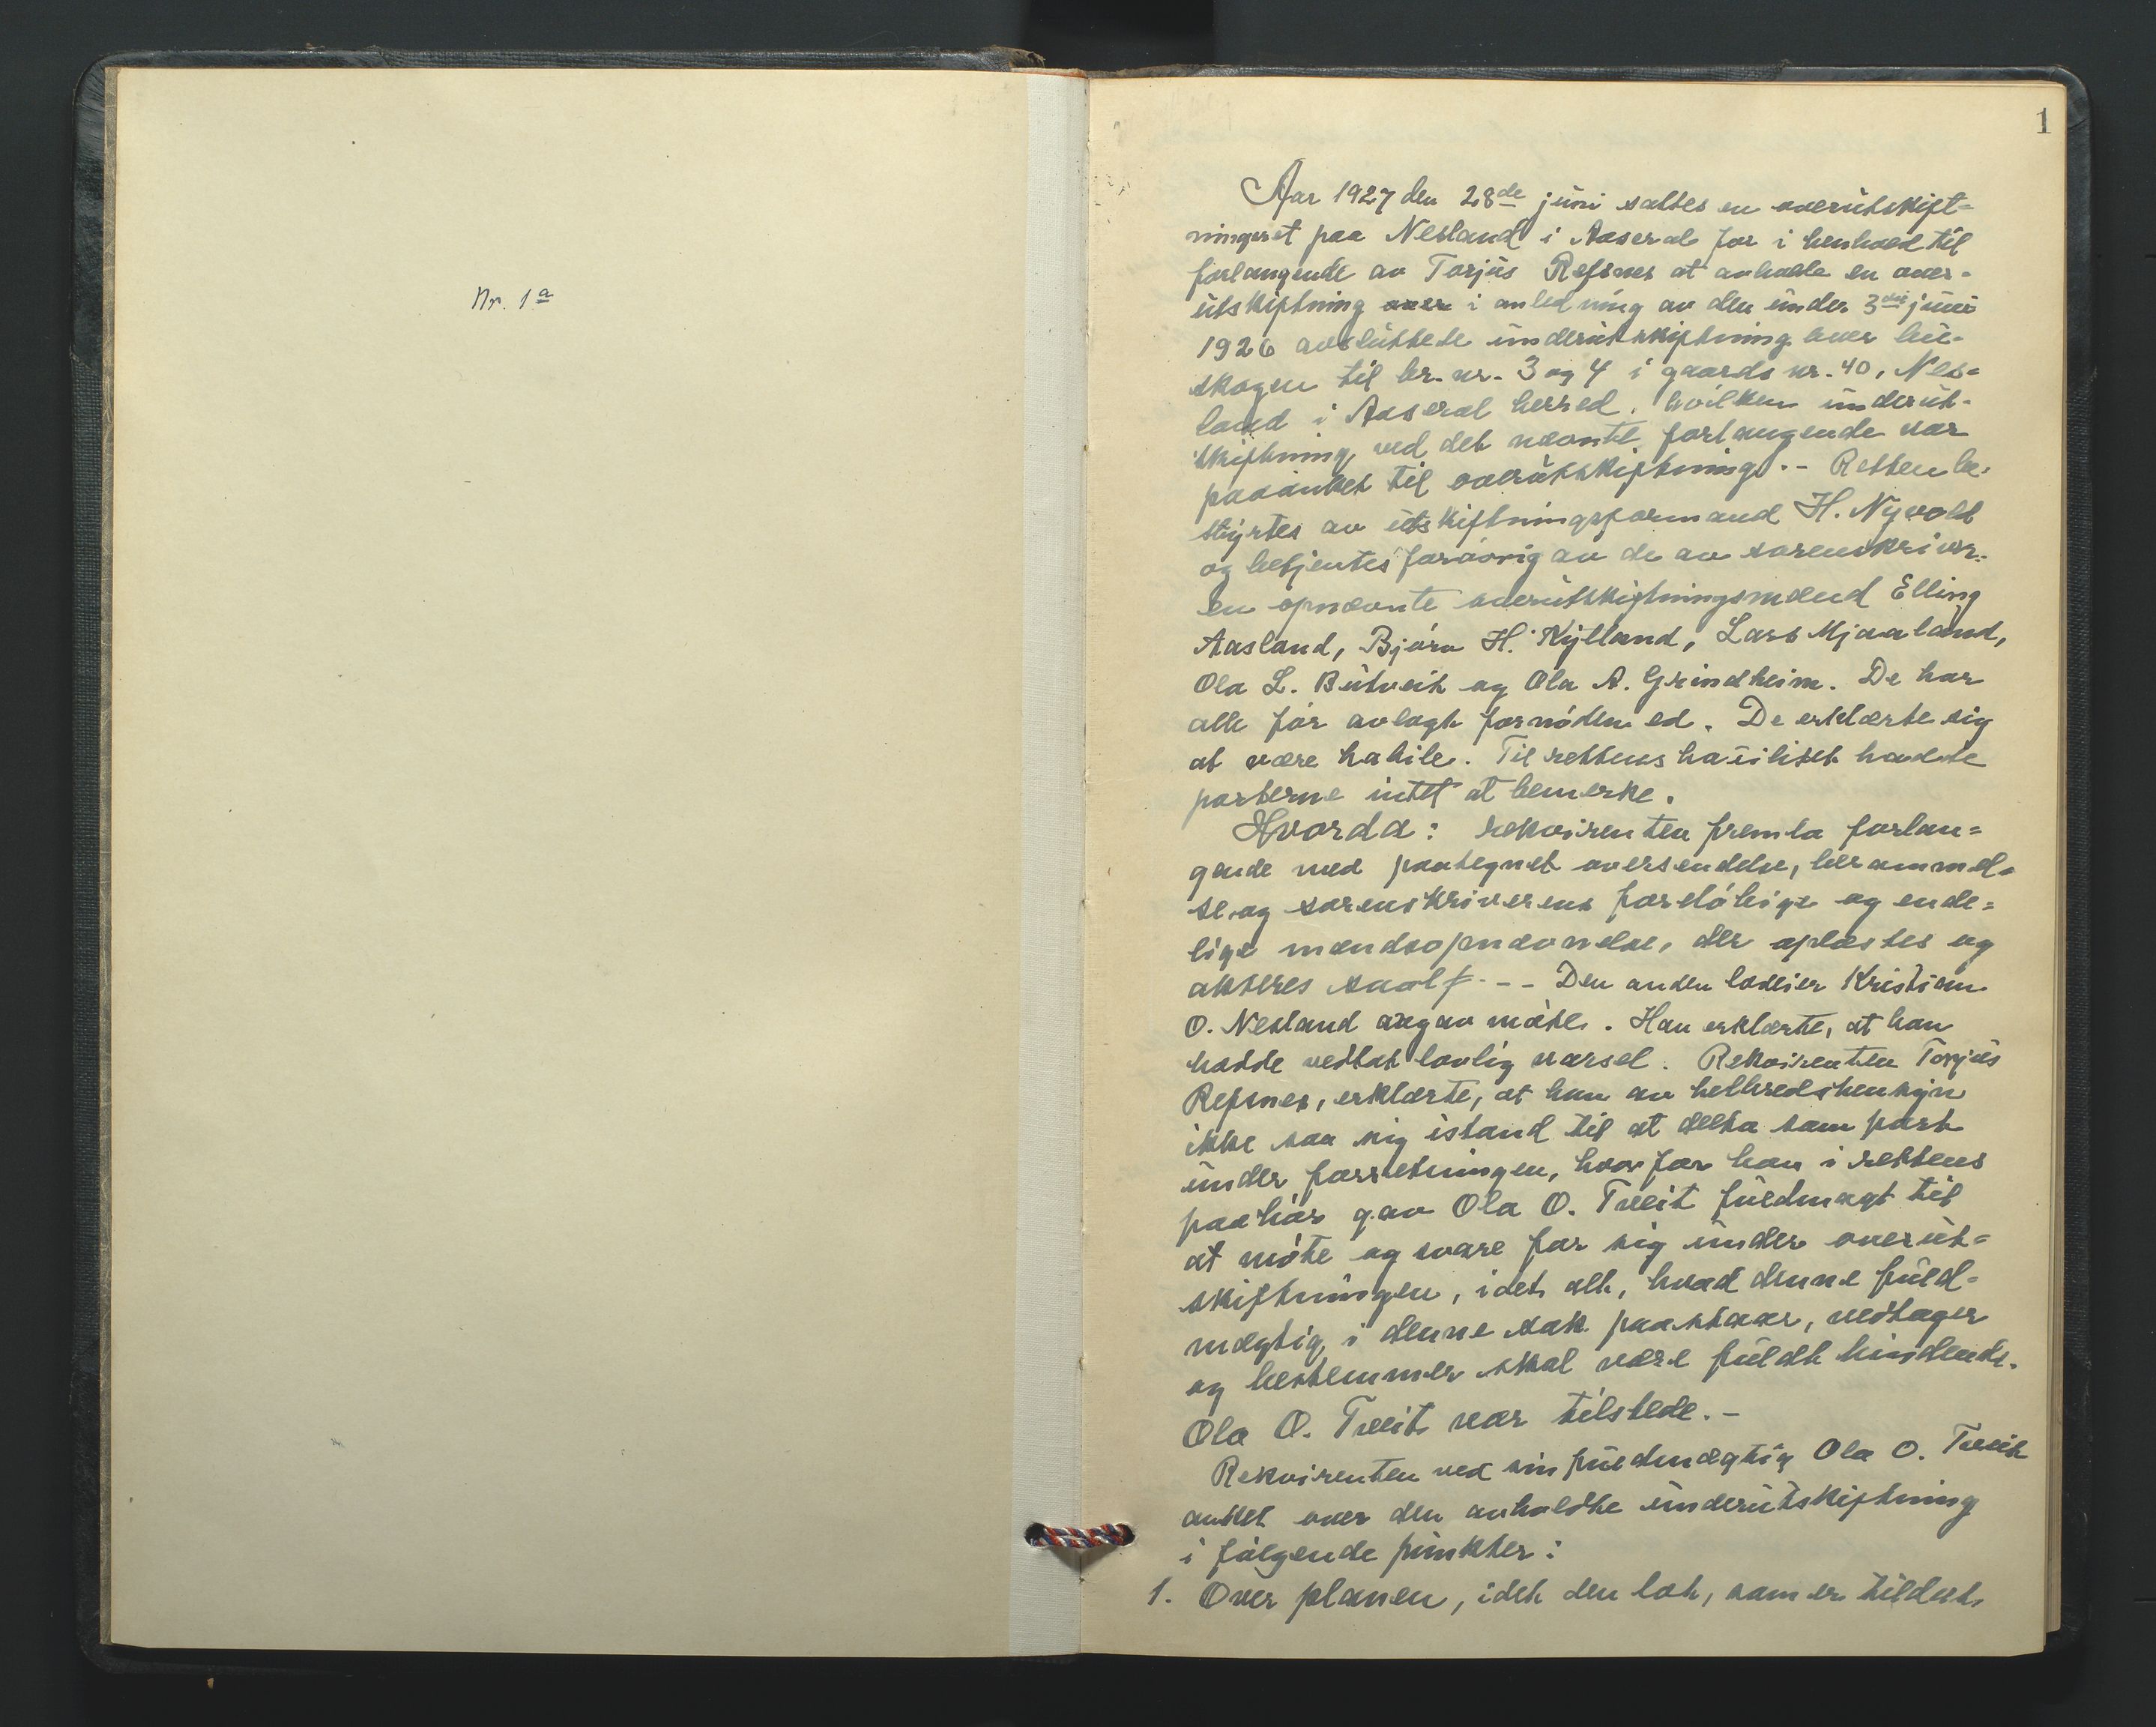 Nr. 1a
1
Aar 1927 den 28de juni sattes en overutskift-
ningsret paa Nesland i Aaseral for i henhold til
forlangende av Torjus Refsnes at avholde en over-
utskiftning over i anledning av den under 3die juni
1926 avsluttede underutskiftning over hei-
skogen til br. nr. 3 og 4 i gaards nr. 40, Nes-
land i Aaseral herred, hvilken underut-
skiftning ved det nævnte forlangende var
paaanket til overutskiftning. - Retten be-
styrtes av utskiftningsformand H. Nyvold
og betjentes forøvrig av de av sorenskriver-
en opnævnte overutskiftningsmænd Elling
Aasland, Bjørn H. Kylland, Lars Mjaaland,
Ola L. Butveit og Ola A. Grindheim. De har
alle før avlagt fornøden ed. De erklærte sig
at være habile. Til rettens habilitet hadde
parterne intet at bemerke.
Hvorda: rekvirenten fremla forlan-
gende med paategnet oversendelse, berammel-
se og sorenskriverens foreløbige og ende-
lige mændsopnævnelse, der oplæstes og
akteres saalf. - - Den anden lodeier Kristian
O. Nesland avgav møte. Han erklærte, at han
hadde vedtat lovlig varsel. Rekvirenten Torjus
Refsnes, erklærte, at han av helbredshensyn
ikke saa sig istand til at delta som part
under forretningen, hvorfor han i rettens
paahør gav Ola O. Tveit fuldmagt til
at møte og svare for sig under overut-
skiftningen, idet alt, hvad denne fuld-
mægtig i denne sak paastaar, vedtager
og bestemmer skal være fuldt bindende.
Ola O. Tveit var tilstede. -
Rekvirenten ved sin fuldmægtig Ola O. Tveit
anket over den avholdte underutskiftning
i følgende punkter:
1. Over planen, idet den lot, som er tildelt